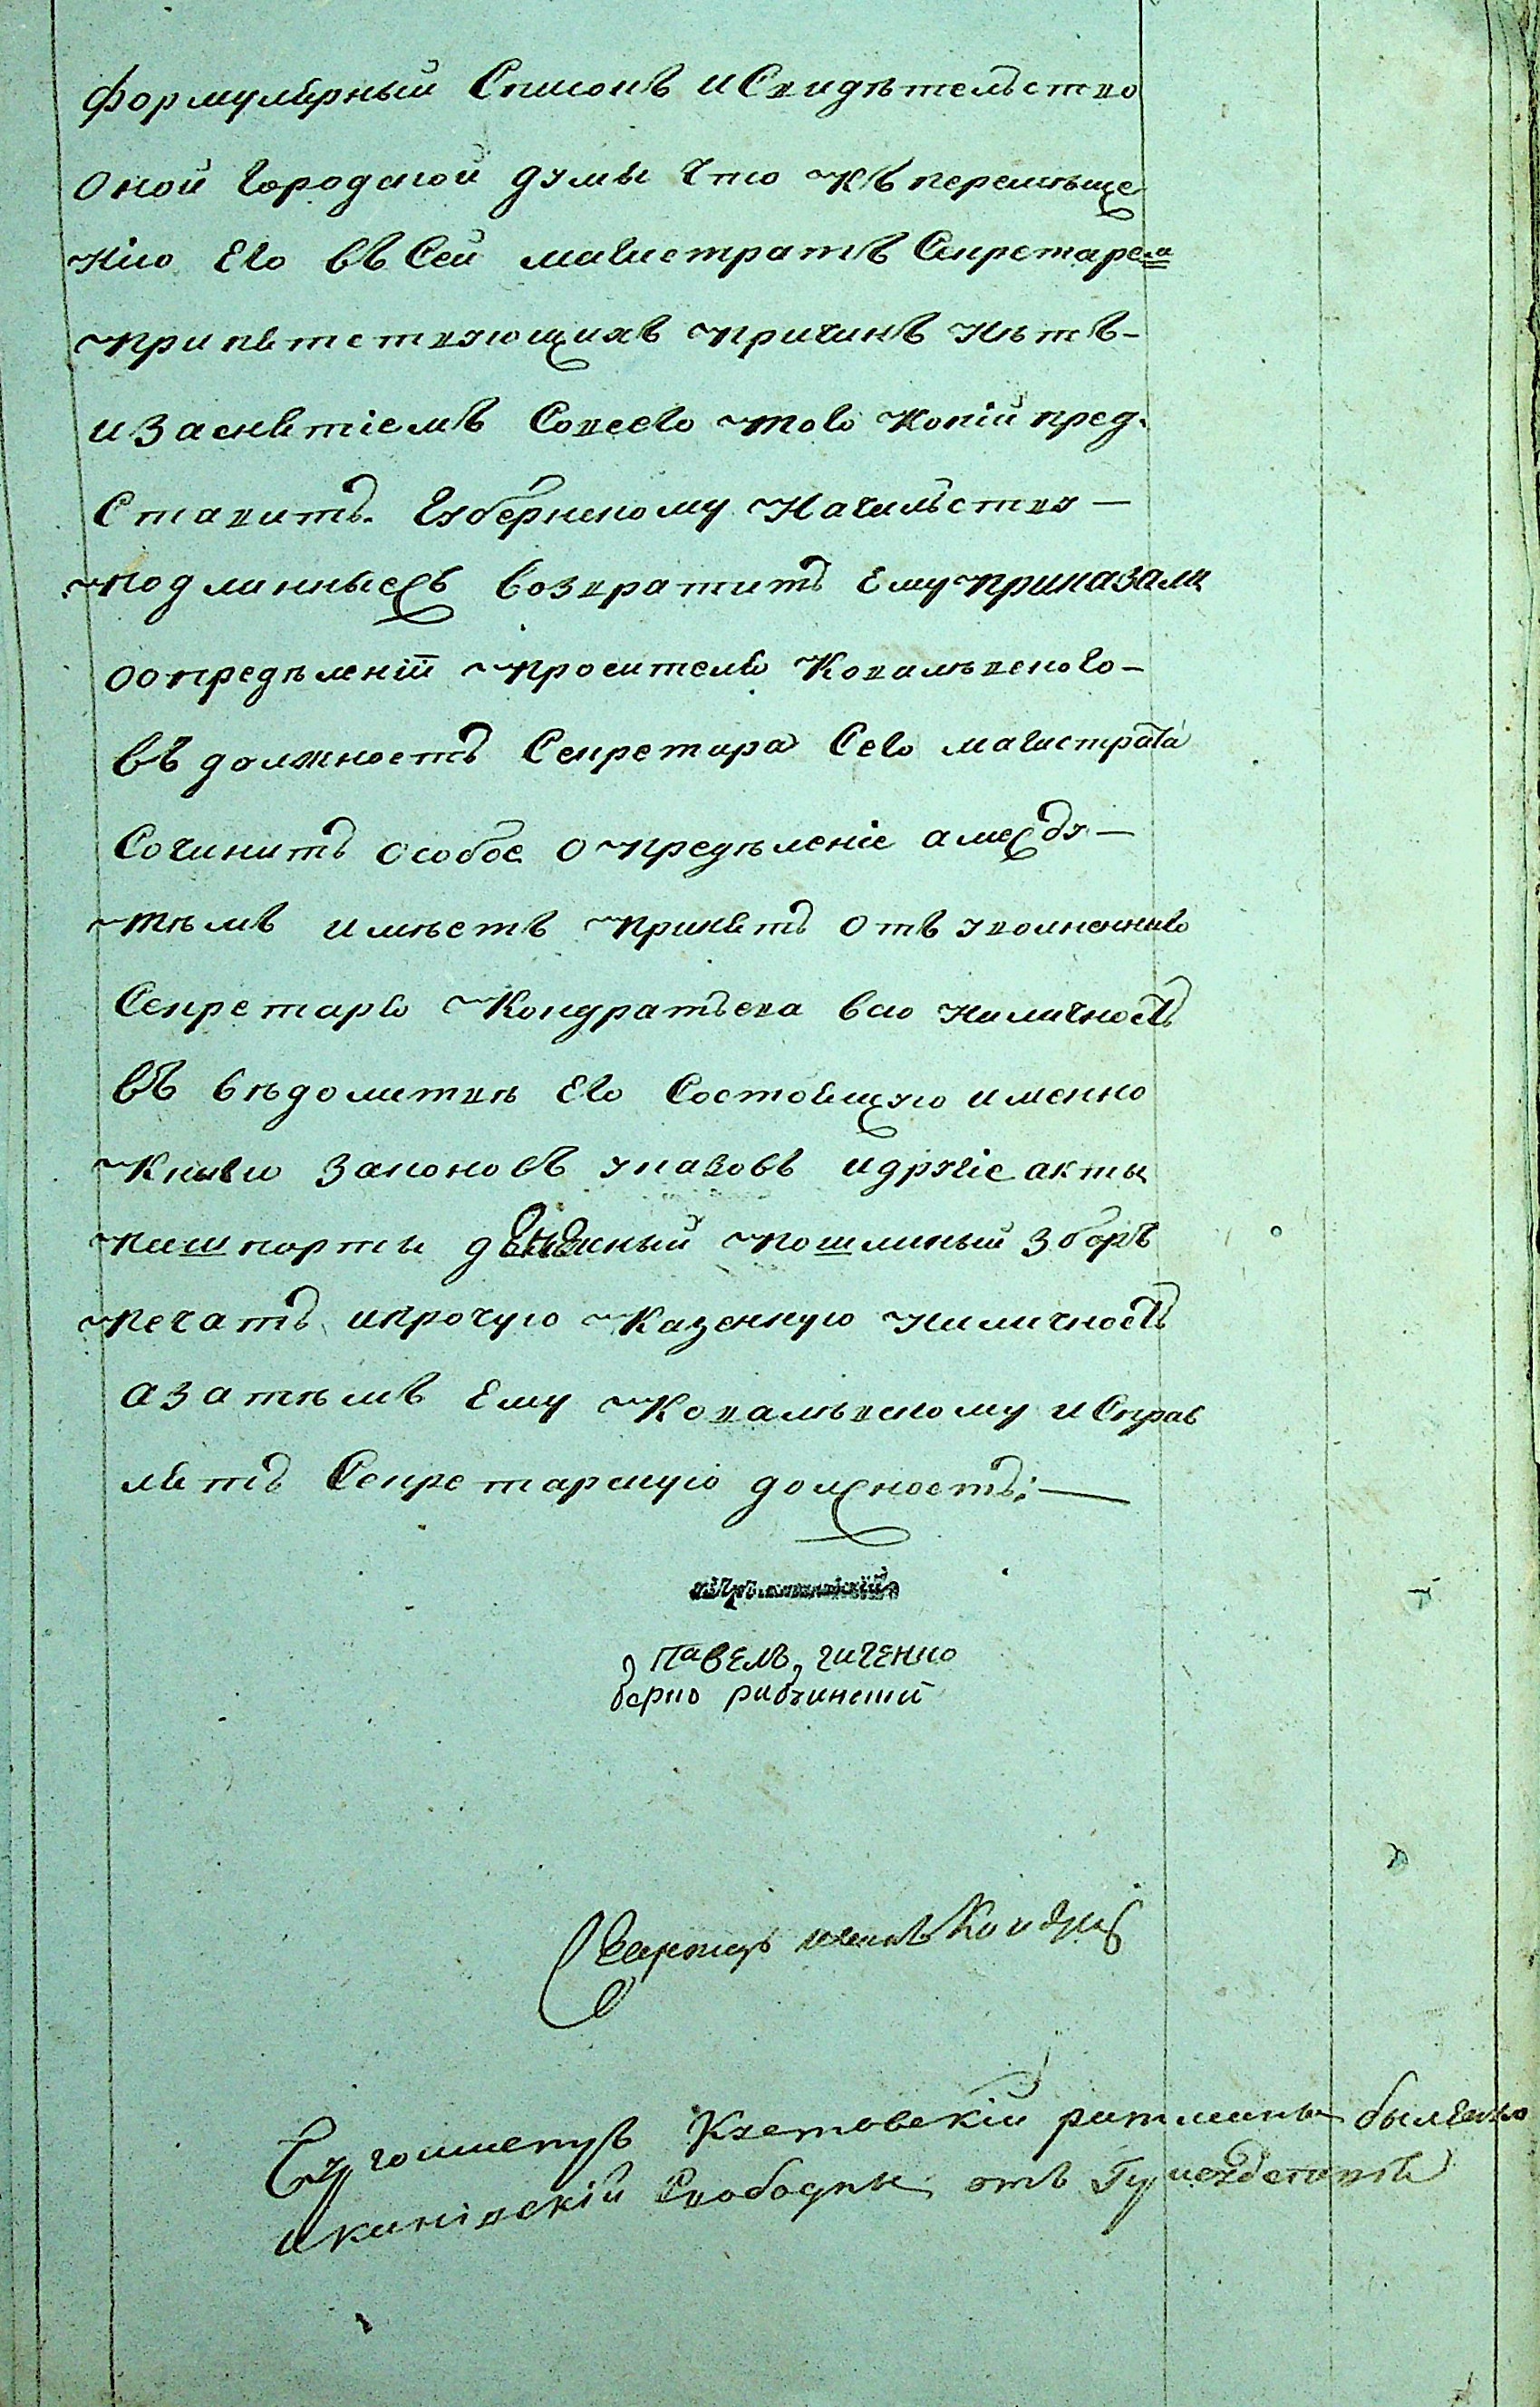 формулярный Списокъ и Свидѣтельство
оной городской думы что къ перемѣще
нію его въ Сей магистратъ Секретарем
припятствующихъ причинъ нѣтъ-
изаснятіемъ Совсего того копій пред-
ставить Губернскому Начальству —
подлинные жъ возвратить ему приказали
оопредѣленіи просителя Ковалѣвского-
въ должность Секретара Сего магистрата
Сочинить особое опредѣленіе а между —
тѣмъ имѣетъ принять отъ уволненнаго
Секретаря Кондратьева всю наличность
въ вѣдомствѣ его Состоящую именно
книги законовъ указовъ идругіе акты
пашпорты денежный пошлиный зборъ
печать ипрочую казенную наличность
азатѣмъ ему Ковалѣвскому исправ
лять Секретарскую должность:—
Павелъ
берко рабчинский